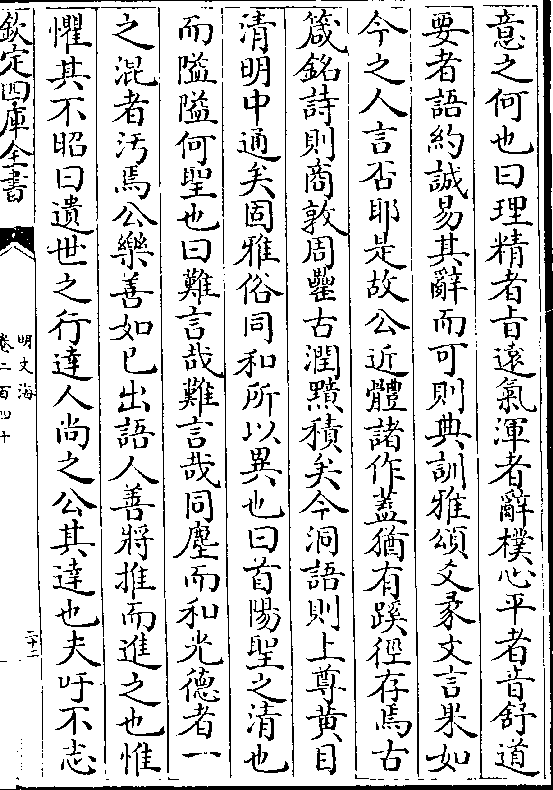 意之何也曰理精者旨遠氣渾者辭樸心平者音舒道
要者語約誠易其辭而可則典訓雅頌爻彖文言果如
今之人言否耶是故公近體諸作蓋猶有蹊徑存焉古
箴銘詩則商敦周罍古潤黰積矣今洞語則上尊黄目
清明中通矣固雅俗同和所以異也曰首陽聖之清也
而隘隘何聖也曰難言哉難言哉同塵而和光德者一
之混者汚焉公樂善如已出語人善將推而進之也惟
懼其不昭曰遺世之行達人尚之公其達也夫吁不志
欽定四庫全書
明文海
卷二百四十
二十二